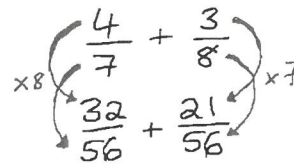 4/7 + 3/8
×8 ×7
32/56 + 21/56